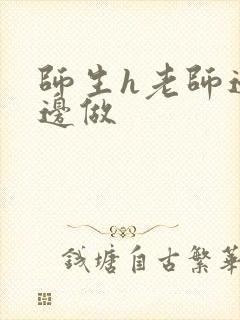 師生h老師邊
邊做
錢塘自古繁華